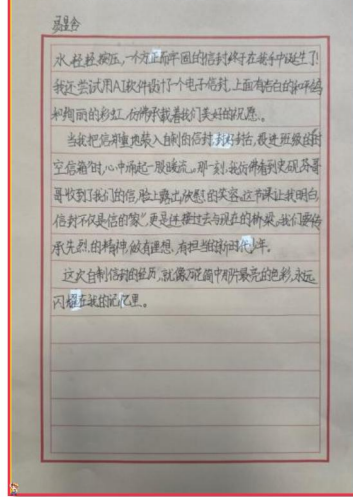 水,轻轻按压,一个方正而牢固的信封终于在我手中诞生了!
我还尝试用AI软件设计了一个电子信封,上面有洁白的和平鸽
和绚丽的彩虹,仿佛承载着我们美好的祝愿。
当我把信郑重地装入自制的信封,封好口,投进班级的“时
空信箱”时,心中涌起一股暖流。那一刻,我仿佛看到史砚芬哥
哥收到了我们的信,脸上露出欣慰的笑容。这节课让我明白,
信封不仅是信的“家”,更是连接过去与现在的桥梁。我们要传
承先烈的精神,做有理想、有担当的新时代少年。
这次自制信封的经历,就像万花筒中那片最亮的色彩,永远
闪耀在我的记忆里。